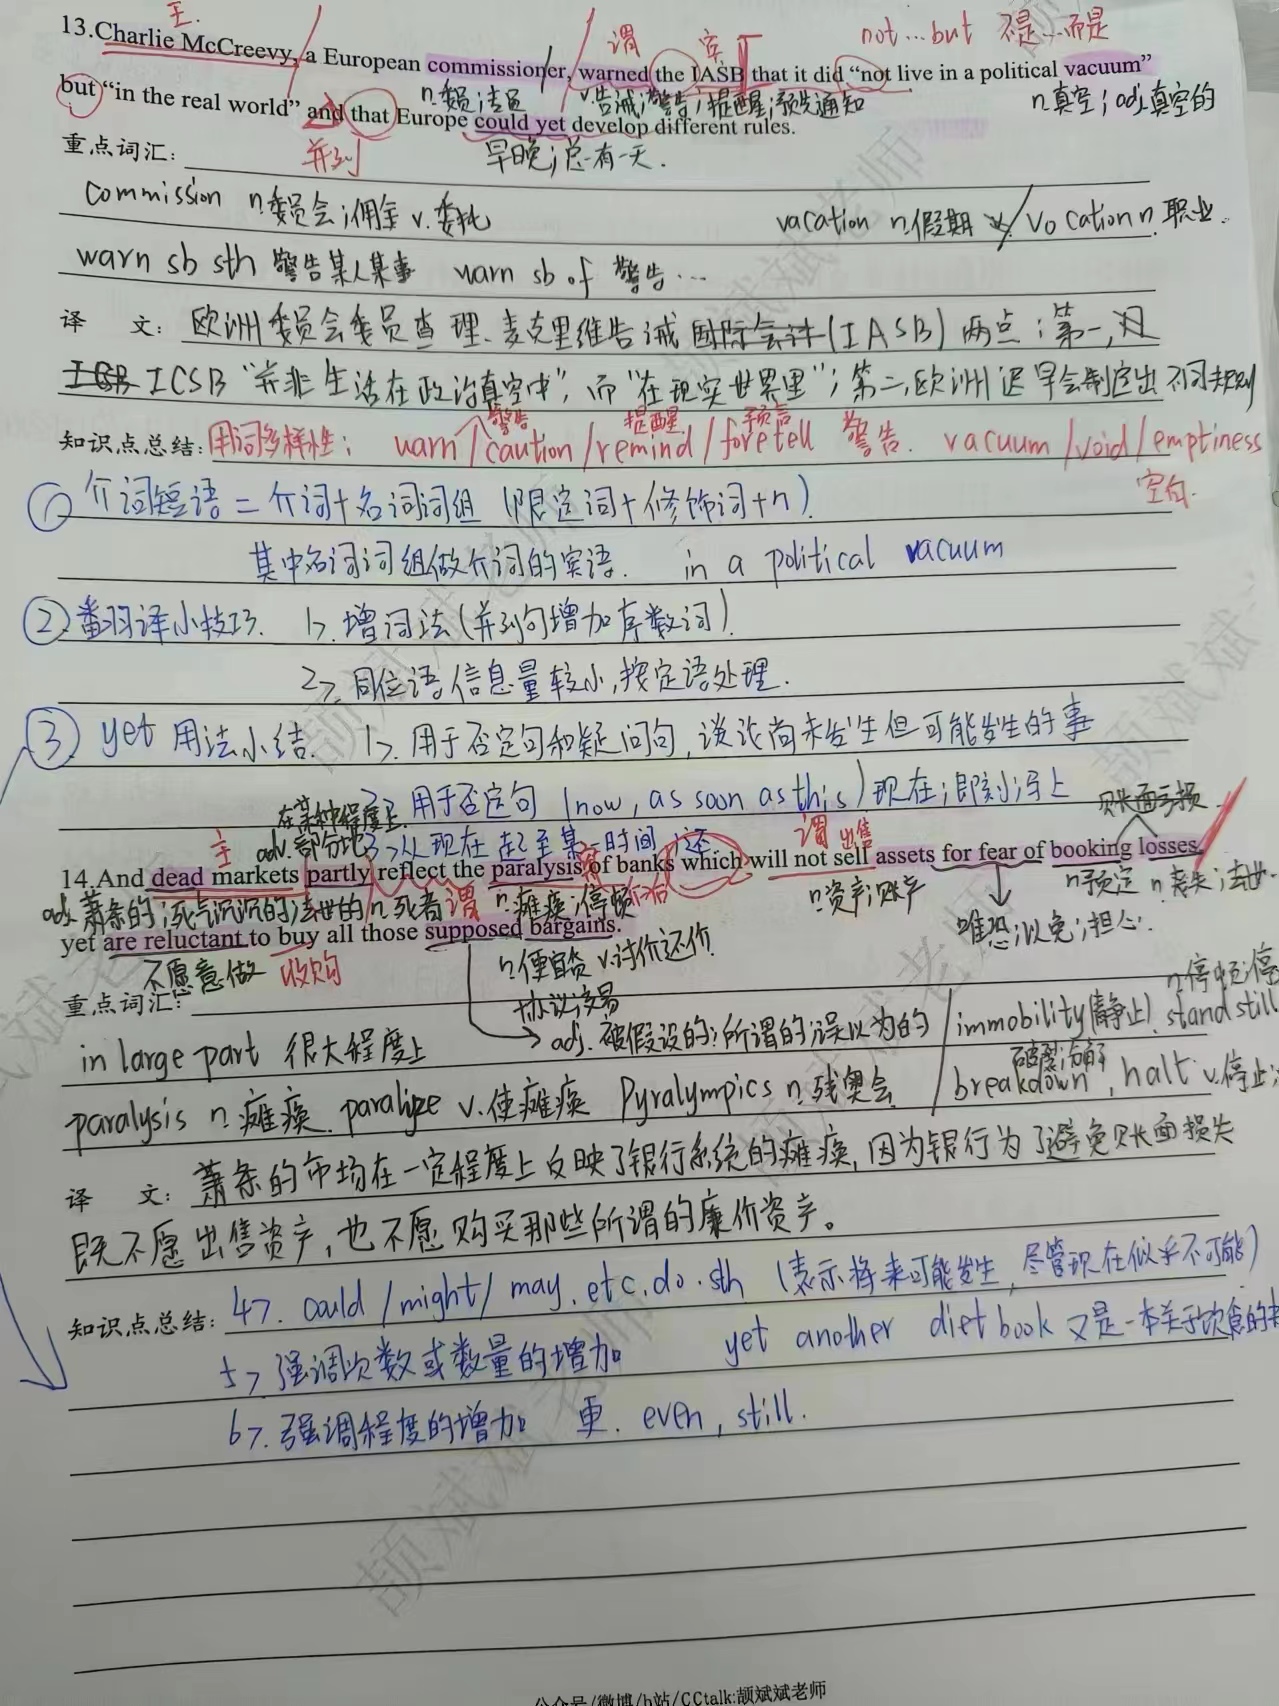 主.
13.Charlie McCreevy, a European commissioner, warned the IASB that it did “not live in a political vacuum”
谓 宾 not…but 不是…而是
but “in the real world” and that Europe could yet develop different rules.
n.委员;法员 v.告诫;警告;提醒;预先通知 n.真空;adj.真空的
重点词汇: 并列 早晚;总有一天.
commission n.委员会;佣金 v.委托 vacation n.假期 / vocation n.职业.
warn sb sth 警告某人某事 warn sb of 警告…
译 文: 欧洲委员会委员查理、麦克里维告诫国际会计(IASB)两点:第一,
ICSB“并非生活在政治真空中”,而“在现实世界里”;第二,欧洲迟早会制定出不同规则
警告 提醒 预言
知识点总结: 用词多样性: warn/caution/remind/foretell 警告. vacuum/void/emptiness
空白.
① 介词短语=介词+名词词组 (限定词+修饰词+n)
其中名词词组做介词的宾语. in a political vacuum
② 翻译小技巧. 1>.增词法(并列句增加序数词).
2>.同位语信息量较小,按定语处理.
③ yet 用法小结. 1>.用于否定句和疑问句,谈论尚未发生但可能发生的事
2>.用于否定句(now, as soon as this)现在;即刻;马上
在某种程度上 账面亏损.
adv.部分地 3>从现在起至某一时间;还
主 谓 出售
14.And dead markets partly reflect the paralysis of banks which will not sell assets for fear of booking losses,
adj.萧条的;死气沉沉的;去世的 n.死者 谓 n.瘫痪;停顿 n.资产;财产 n.预定 n.丧失;去世.
yet are reluctant to buy all those supposed bargains.
唯恐;以免;担心.
不愿意做 收购 n.便宜货 v.讨价还价
重点词汇: 协议;交易 n.停顿;停
in large part 很大程度上 adj.被假设的;所谓的;误以为的 / immobility(静止). standstill
破裂;故障
paralysis n.瘫痪. paralyze v.使瘫痪 Pyralympics n.残奥会. / breakdown, halt v.停止;
译 文: 萧条的市场在一定程度上反映了银行系统的瘫痪,因为银行为了避免账面损失
既不愿出售资产,也不愿购买那些所谓的廉价资产。
知识点总结: 4>. could/might/may.etc.do.sth (表示将来可能发生,尽管现在似乎不可能)
5>强调次数或数量的增加 yet another diet book 又是一本关于饮食的书
6>.强调程度的增加 更. even, still.
公众号/微博/b站/CCtalk:颉斌斌老师